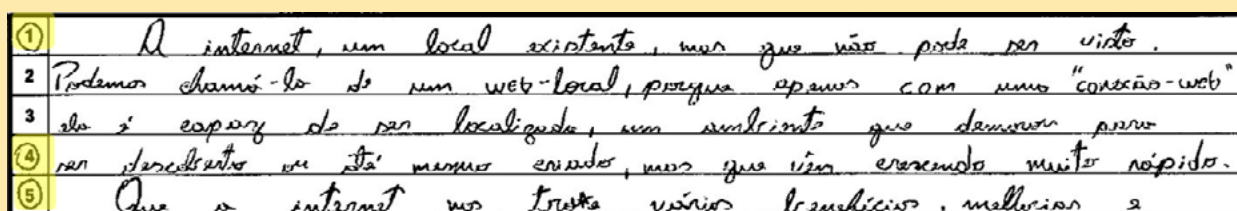 1 A internet, um local existente, mas que não pode ser visto.
2 Podemos chamá-lo de um web-local, porque apenas com uma "conexão-web"
3 ela é capaz de ser localizada, um ambiente que demorou para
4 ser descoberto ou até mesmo criado, mas que vêm crescendo muito rápido.
5 Que a internet nos trouxe vários benefícios, melhorias e